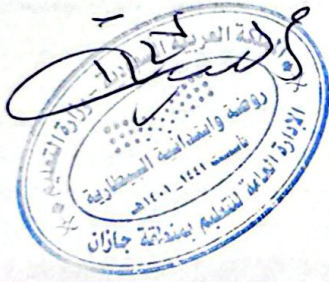 المملكة العربية السعودية - وزارة التعليم
روضة وابتدائية البيطارية
تأسست ١٤٤١ - ١٤٠١هـ
الإدارة العامة للتعليم بمنطقة جازان